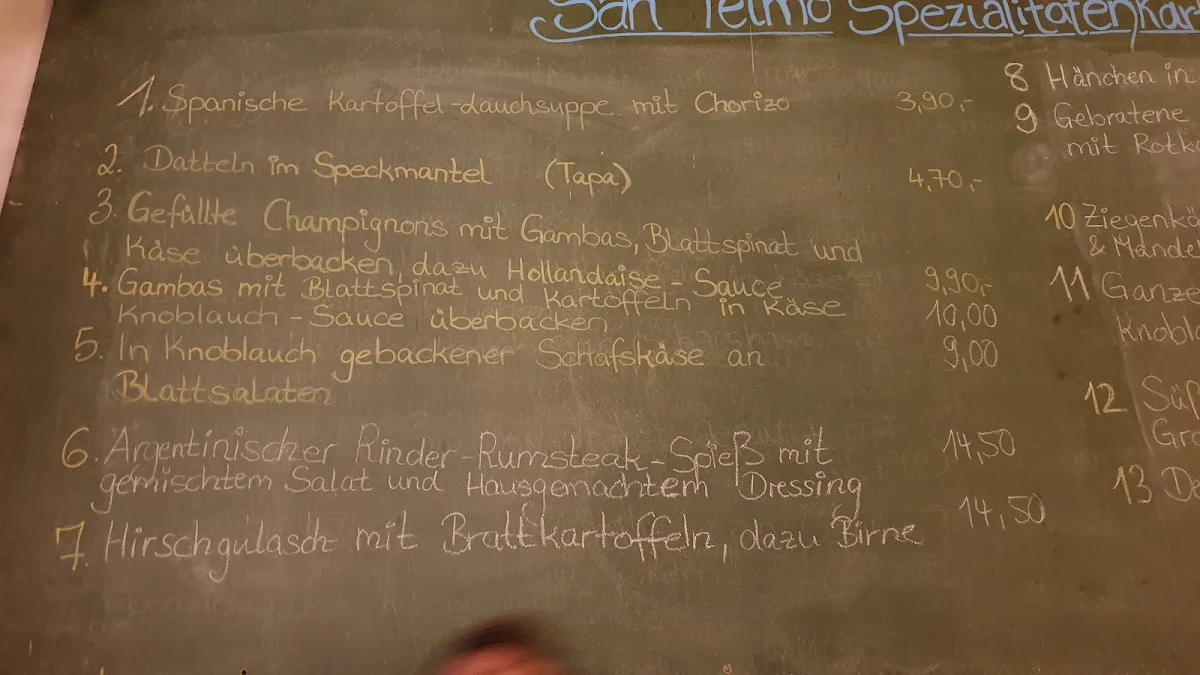 San Telmo Spezialitätenkar
1. Spanische Kartoffel-Lauchsuppe mit Chorizo 3,90,-
2. Datteln im Speckmantel (Tapa) 4,70,-
3. Gefüllte Champignons mit Gambas, Blattspinat und
Käse überbacken, dazu Hollandaise-Sauce 9,90,-
4. Gambas mit Blattspinat und Kartoffeln in Käse
Knoblauch-Sauce überbacken 10,00
5. In Knoblauch gebackener Schafskäse an 9,00
Blattsalaten
6. Argentinischer Rinder-Rumsteak-Spieß mit 14,50
gemischtem Salat und Hausgemachtem Dressing
7. Hirschgulasch mit Bratkartoffeln, dazu Birne 14,50
8 Hänchen in
9 Gebratene
mit Rotk
10 Ziegenkä
& Mande
11 Ganze
Knobl
12 Süß
Gra
13 De